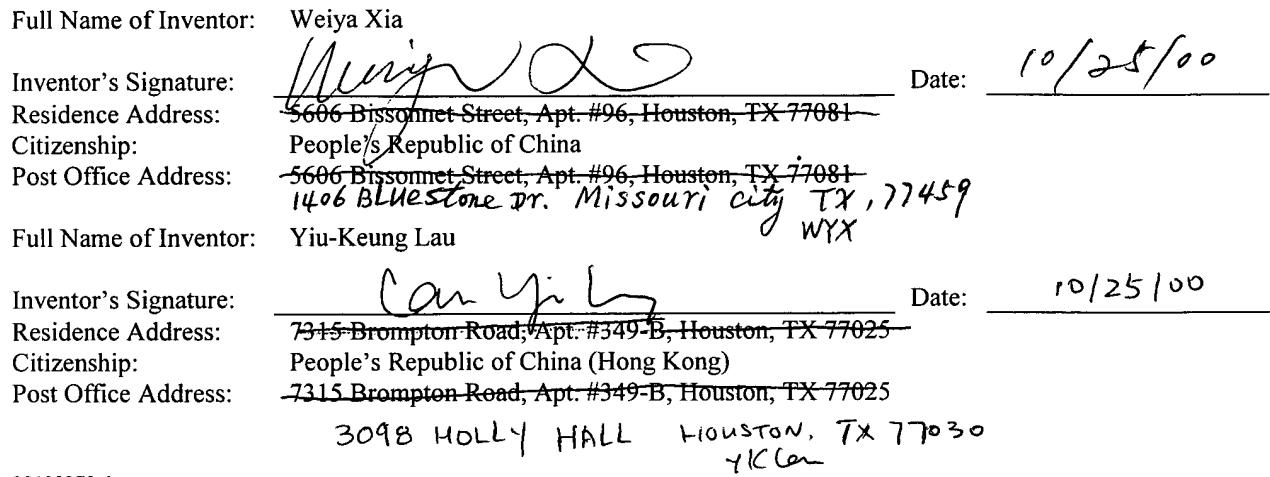 Full Name of Inventor: Weiya Xia
Inventor's Signature: Date: 10/25/00
Residence Address: 5606 Bissonnet Street, Apt. #96, Houston, TX 77081
Citizenship: People's Republic of China
Post Office Address: 5606 Bissonnet Street, Apt. #96, Houston, TX 77081
1406 Bluestone Dr. Missouri city TX, 77459
WYX
Full Name of Inventor: Yiu-Keung Lau
Inventor's Signature: Date: 10/25/00
Residence Address: 7315 Brompton Road, Apt. #349-B, Houston, TX 77025
Citizenship: People's Republic of China (Hong Kong)
Post Office Address: 7315 Brompton Road, Apt. #349-B, Houston, TX 77025
3098 HOLLY HALL HOUSTON, TX 77030